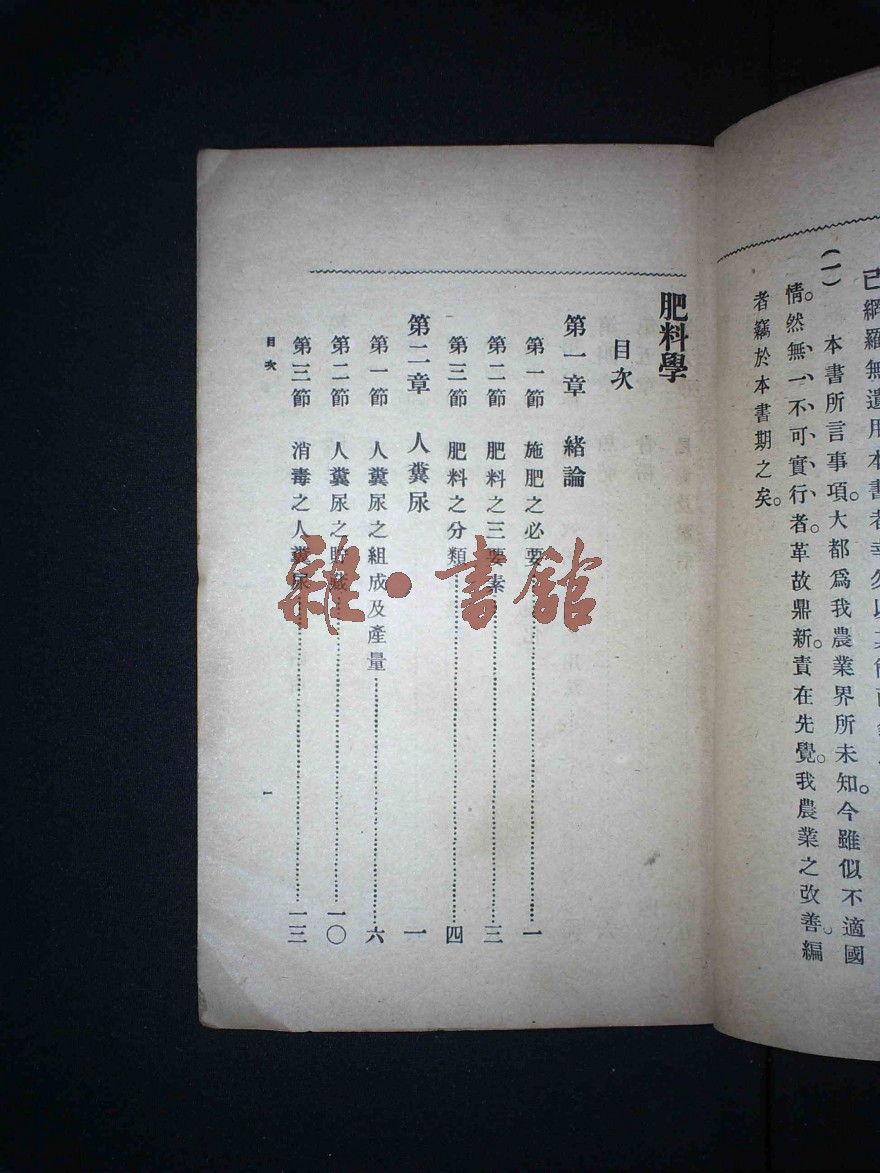 已網羅無遺用本書者幸勿以其
(一) 本書所言事項。大都爲我農業界所未知。今雖似不適國
情。然無一不可實行者。革故鼎新。責在先覺。我農業之改善。編
者竊於本書期之矣。
肥料學
目次
第一章 緒論
第一節 施肥之必要……一
第二節 肥料之三要素……三
第三節 肥料之分類……四
第二章 人糞尿 一
第一節 人糞尿之組成及產量……六
第二節 人糞尿之貯藏……一〇
第三節 消毒之人糞尿……一三
目次
一
雜·書館